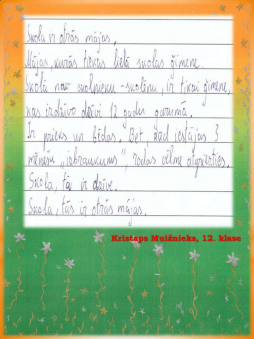 Skola ir otrās mājas.
Mājas, kurās tiekas lielā skolas ģimene.
Skolā nav skolnieku - skolēnu, ir tikai ģimene,
kas izdzīvo dzīvi 12 gadu garumā.
Ir prieks un bēdas. Bet, kad iestājas 3
mēnešu „izbraukums”, rodas vēlme atgriezties.
Skola, tā ir dzīve.
Skola, tās ir otrās mājas.
Kristaps Muižnieks, 12. klase